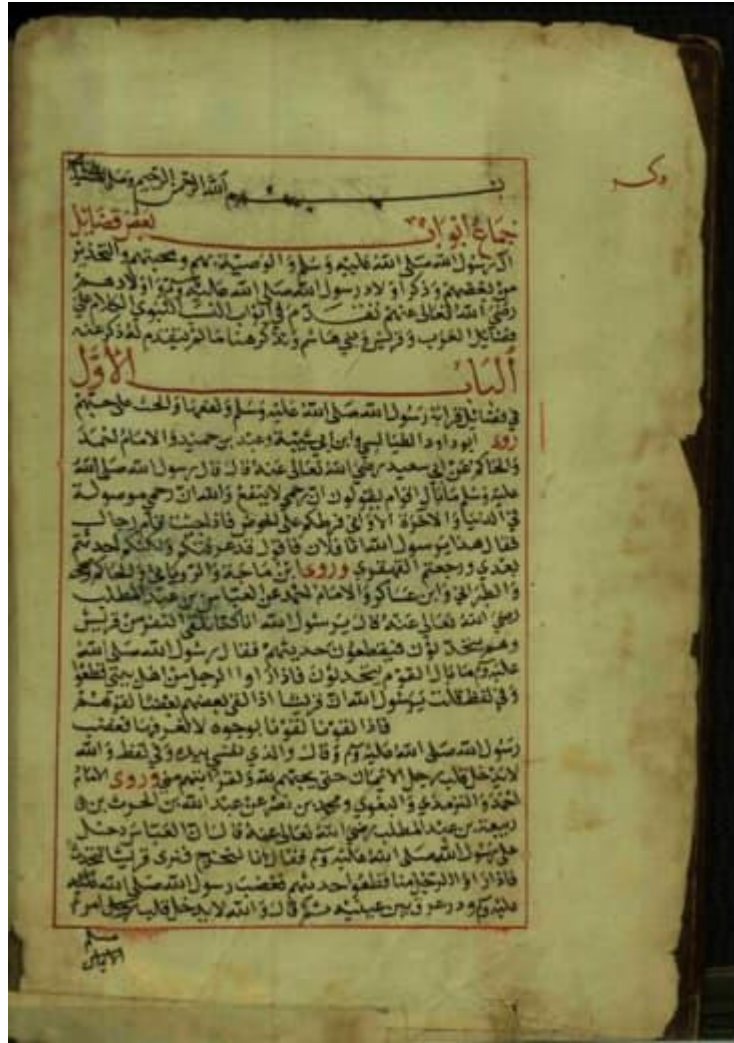 بسم الله الرحمن الرحيم وصلى الله
جماع أبواب بعض فضايل
آل رسول الله صلى الله عليه وسلم والوصية بهم ومحبتهم والتحذير
من بغضهم وذكر أولاد رسول الله صلى الله عليه وسلم وأولادهم
رضي الله تعالى عنهم تقدم في أبواب النسب النبوي الكلام على
فضايل العرب وقريش وبني هاشم ونذكر هنا ما لم يتقدم له ذكر عنه
الباب الأول
في فضايل قرابة رسول الله صلى الله عليه وسلم ونفعها والحث على حبهم
روى أبو داود الطيالسي وابن أبي شيبة وعبد بن حميد والإمام أحمد
والحاكم عن أبي سعيد رضي الله تعالى عنه قال قال رسول الله صلى الله
عليه وسلم ما بال أقوام يقولون ان رحمي لا ينفع والله ان رحمي موصولة
في الدنيا والآخرة ألا واني فرطكم على الحوض فإذا جئت قام رجال
فقال هذا يرسول الله انا فلان فأقول قد عرفتكم ولكنكم أحدثتم
بعدي ورجعتم القهقرى وروى ابن ماجة والروياني والحاكم
والطبراني وابن عساكر والإمام أحمد عن العباس بن عبد المطلب
رضي الله تعالى عنه قال يرسول الله انا كنا نلقى النفر من قريش
وهم يتحدثون فيقطعون حديثهم فقال رسول الله صلى الله
عليه وسلم ما بال القوم يتحدثون فإذا رأوا الرجل من أهل بيتي قطعوا
وفي لفظ قلت يرسول الله ان قريشا اذا لقي بعضهم بعضا لقوهم
فاذا لقونا لقونا بوجوه لا نعرفها فغضب
رسول الله صلى الله عليه وسلم وقال والذي نفسي بيده وفي لفظ والله
لا يدخل قلب رجل الايمان حتى يحبهم لله ولقرابتهم مني وروى الامام
أحمد والترمذي والبغوي ومحمد بن نصر عن عبد الله بن الحرث بن
ربيعة بن عبد المطلب رضي الله تعالى عنه قال ان العباس دخل
على رسول الله صلى الله عليه وسلم فقال إنا لنخرج فنرى قريشا تتحدث
فاذا رأوا الرجل منا قطعوا حديثهم فغضب رسول الله صلى الله
عليه وسلم ودر عرق بين عينيه ثم قال والله لا يدخل قلب رجل امرئ
مسلم
الايمان